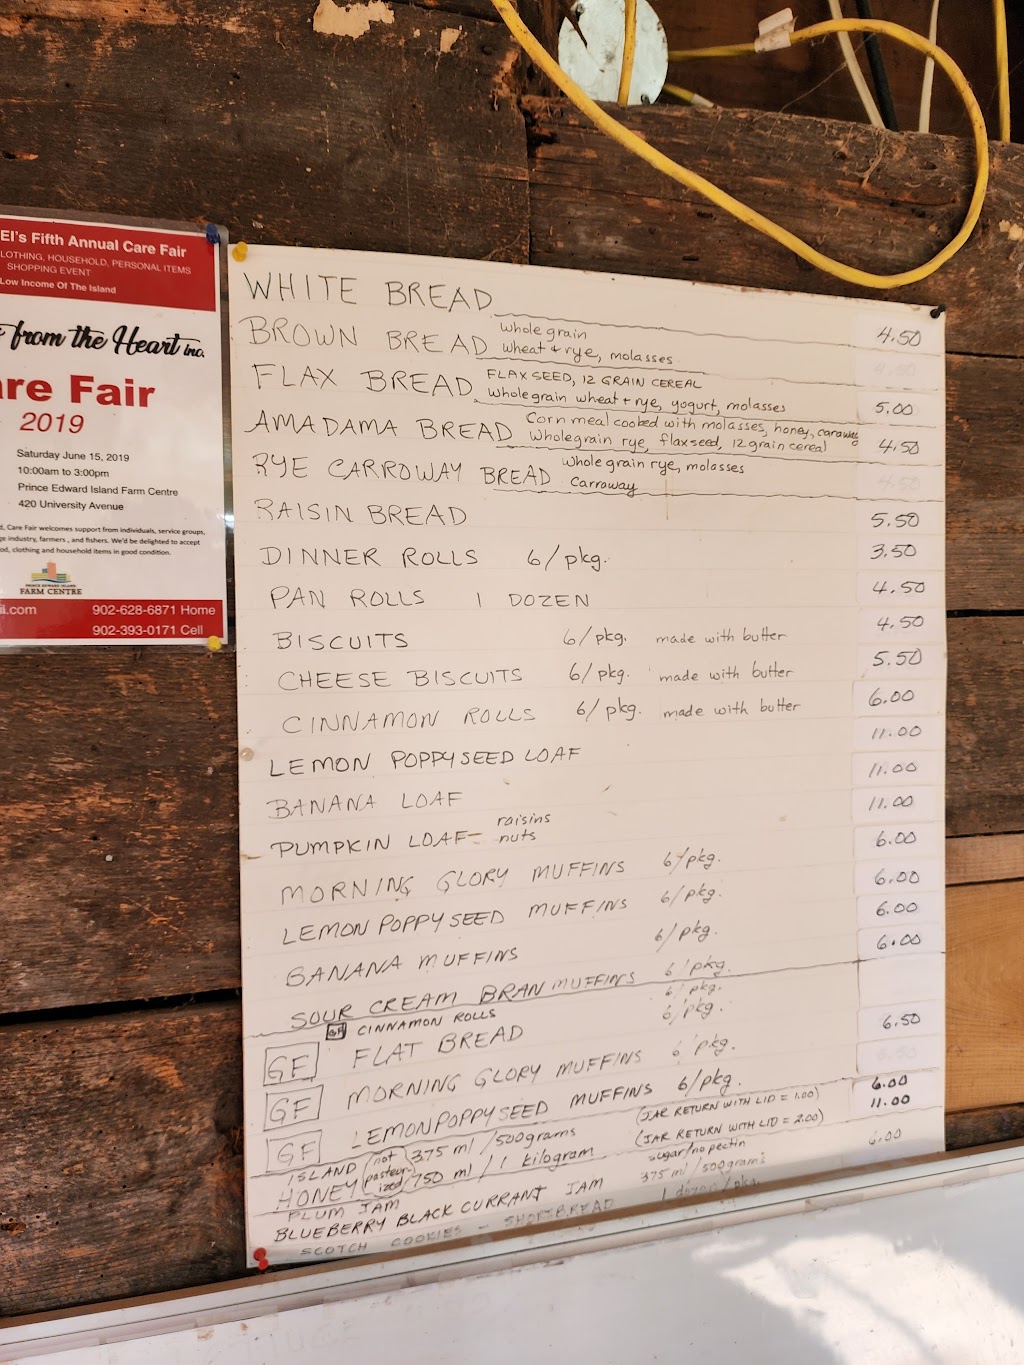 EI's Fifth Annual Care Fair
LOTHING, HOUSEHOLD, PERSONAL ITEMS
SHOPPING EVENT
Low Income Of The Island
from the Heart inc.
are Fair
2019
Saturday June 15, 2019
10:00am to 3:00pm
Prince Edward Island Farm Centre
420 University Avenue
d, Care Fair welcomes support from individuals, service groups,
ge industry, farmers, and fishers. We'd be delighted to accept
od, clothing and household items in good condition.
PRINCE EDWARD ISLAND
FARM CENTRE
il.com 902-628-6871 Home
902-393-0171 Cell
WHITE BREAD 4.50
BROWN BREAD whole grain
wheat + rye, molasses 4.50
FLAX BREAD FLAX SEED, 12 GRAIN CEREAL
whole grain wheat + rye, yogurt, molasses 5.00
AMADAMA BREAD Corn meal cooked with molasses, honey, caraway
Whole grain rye, flaxseed, 12 grain cereal 4.50
RYE CARROWAY BREAD whole grain rye, molasses
Carroway 4.50
RAISIN BREAD 5.50
DINNER ROLLS 6/pkg. 3.50
PAN ROLLS 1 DOZEN 4.50
BISCUITS 6/pkg. made with butter 4.50
CHEESE BISCUITS 6/pkg. made with butter 5.50
CINNAMON ROLLS 6/pkg. made with butter 6.00
LEMON POPPYSEED LOAF 11.00
BANANA LOAF 11.00
PUMPKIN LOAF - raisins
nuts 11.00
MORNING GLORY MUFFINS 6/pkg. 6.00
LEMON POPPYSEED MUFFINS 6/pkg. 6.00
BANANA MUFFINS 6/pkg. 6.00
SOUR CREAM BRAN MUFFINS 6/pkg. 6.00
GF CINNAMON ROLLS 6/pkg.
GF FLAT BREAD 6/pkg.
GF MORNING GLORY MUFFINS 6/pkg. 6.50
GF LEMON POPPYSEED MUFFINS 6/pkg.
ISLAND HONEY (not pasteurized) 375 ml / 500grams (JAR RETURN WITH LID = 1.00) 6.00
750 ml / 1 kilogram (JAR RETURN WITH LID = 2.00) 11.00
PLUM JAM sugar/no pectin
BLUEBERRY BLACK CURRANT JAM 375 ml / 500grams 6.00
SCOTCH COOKIES - SHORTBREAD 1 dozen/pkg.